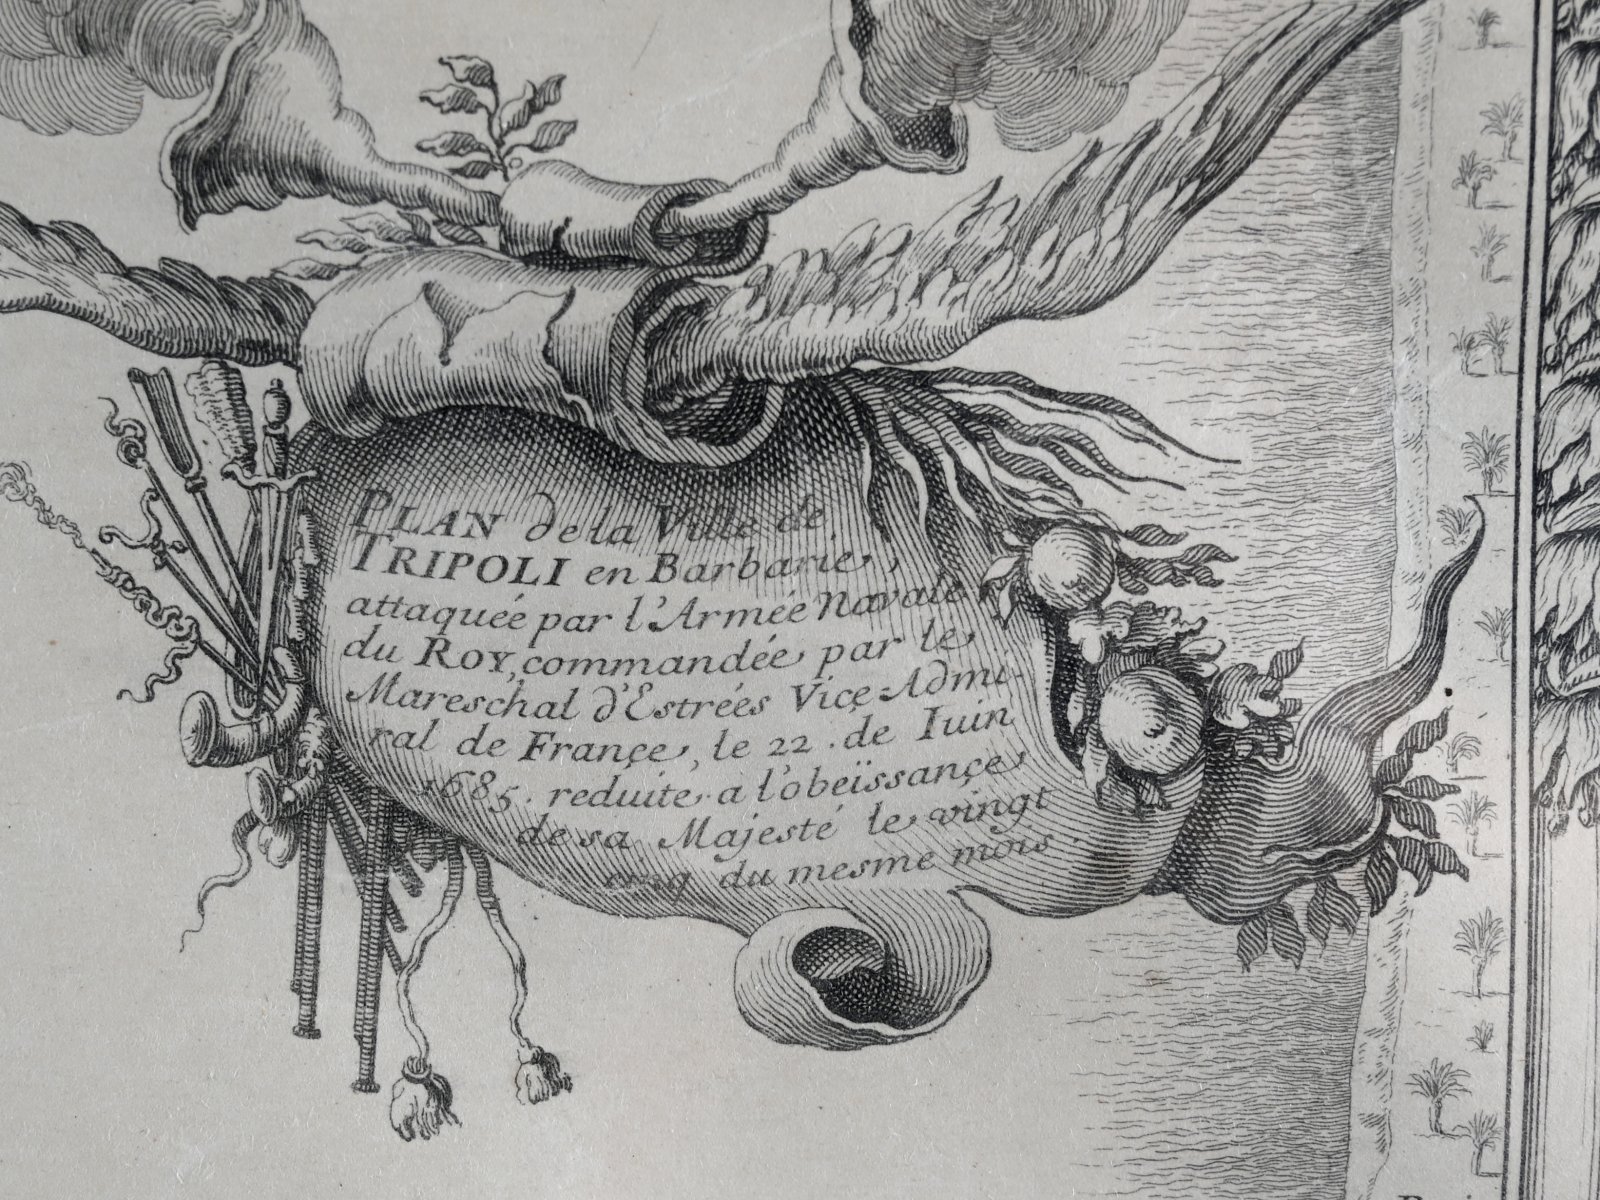 PLAN de la Ville de
TRIPOLI en Barbarie,
attaqueé par l'Armée Navale
du ROY, commandée par le
Mareschal d'Estreés Viçe-Admi-
ral de Françe, le 22. de Iuin
1685. reduite a l'obeïssançe
de sa Majesté le vingt
cinq du mesme mois.